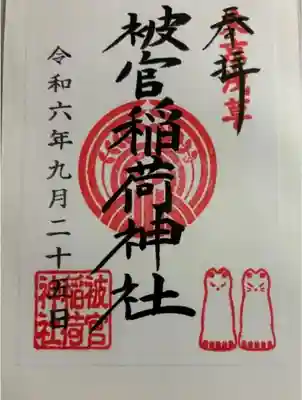 奉拝
東京浅草
被官稲荷神社
令和六年九月二十五日
被官
稲荷
神社